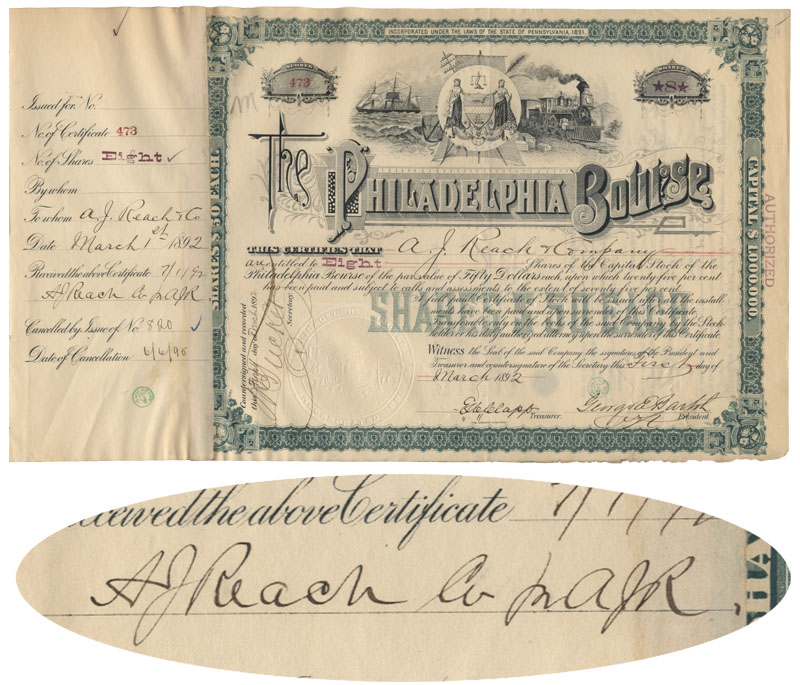 INCORPORATED UNDER THE LAWS OF THE STATE OF PENNSYLVANIA, 1891.
NUMBER
473
SHARES
★8★
The Philadelphia Bourse
SHARES 50 EACH
CAPITAL $1,000,000
AUTHORIZED
Issued for No.
No. of Certificate 473
No. of Shares Eight ✓
By whom
To whom A. J. Reach & Co
Date March 1st 1892
Received the above Certificate 7/1/92
AJ Reach Co pr AJR
Cancelled by Issue of No. 820 ✓
Date of Cancellation 6/6/95
THIS CERTIFIES THAT A. J. Reach & Company
are entitled to Eight Shares of the Capital Stock of the
Philadelphia Bourse of the par value of Fifty Dollars each, upon which twenty five per cent
has been paid and subject to calls and assessments to the extent of seventy five per cent.
A full paid Certificate of Stock will be issued after all the install-
ments have been paid and upon surrender of this Certificate.
Transferable only on the books of the said Company by the Stock-
holder or his duly authorized attorney upon the surrender of this Certificate.
Witness the Seal of the said Company the signatures of the President and
Treasurer and countersignature of the Secretary this First day of
March 1892
Treasurer.
George E. Bartol
President.
Countersigned and recorded
Secretary
eceived the above Certificate 7/1/92
AJ Reach Co pr AJR.